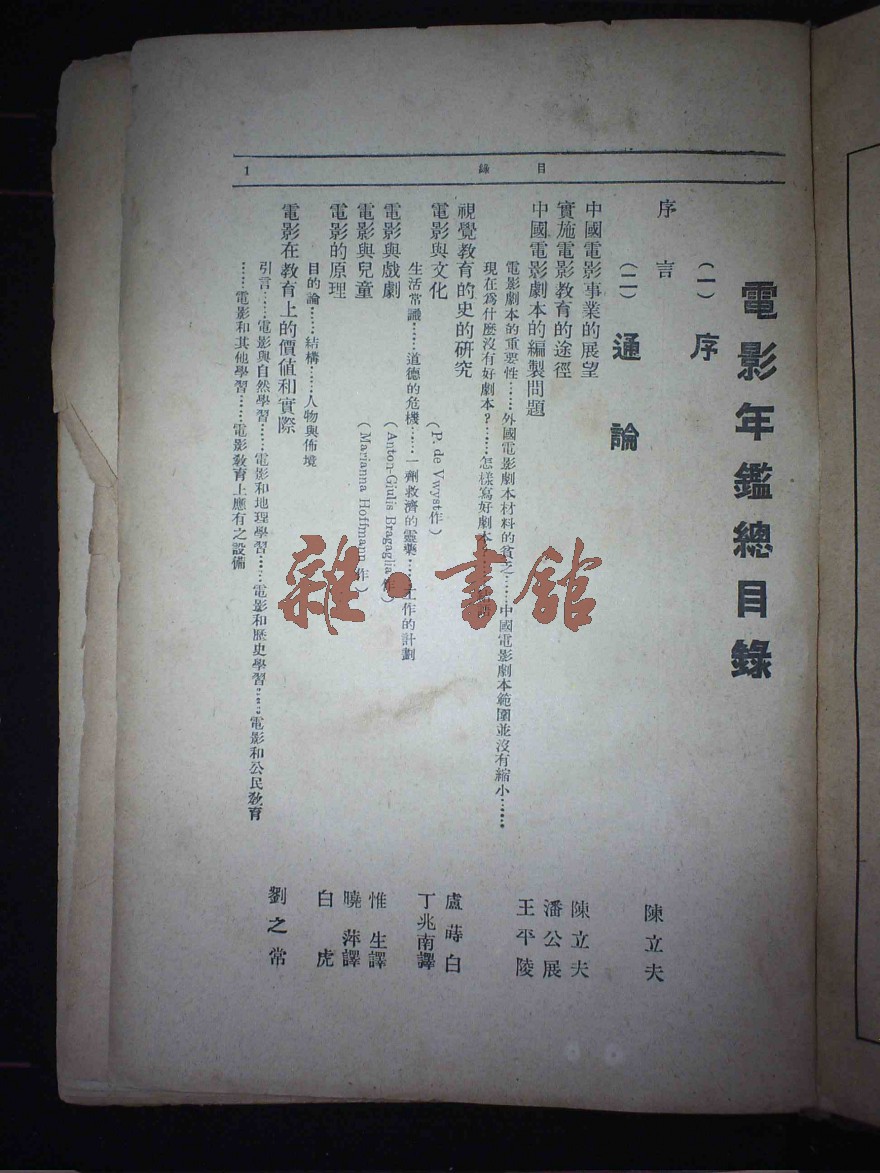 目錄
1
電影年鑑總目錄
(一) 序
序言
陳立夫
(二) 通論
中國電影事業的展望
陳立夫
實施電影教育的途徑
潘公展
中國電影劇本的編製問題
王平陵
電影劇本的重要性……外國電影劇本材料的貧乏……中國電影劇本範圍並沒有縮小……
現在爲什麼沒有好劇本?……怎樣寫好劇本
視覺教育的史的研究
盧蒔白
電影與文化
(P. de Vwyst作)
丁兆南譯
生活常識……道德的危機……一劑救濟的靈藥……工作的計劃
電影與戲劇
(Anton-Giulis Bragaglia作)
惟生譯
電影與兒童
(Marianna Hoffmann作)
曉萍譯
電影的原理
白虎
目的論……結構……人物與佈境
電影在教育上的價值和實際
劉之常
引言……電影與自然學習……電影和地理學習……電影和歷史學習……電影和公民教育
……電影和其他學習……電影教育上應有之設備
雜·書館